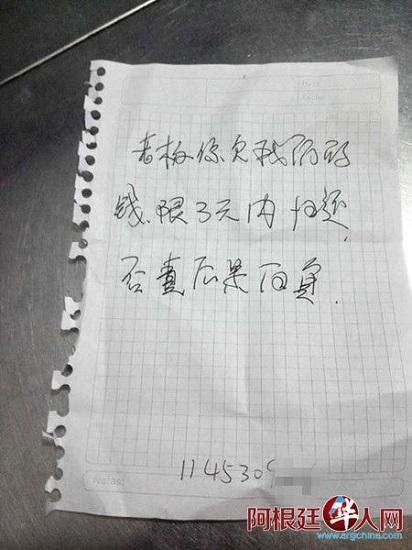 老板你欠我们的
钱.限3天内归还,
否则后果自负.
Notas:
1145309
阿根廷华人网
www.argchina.com